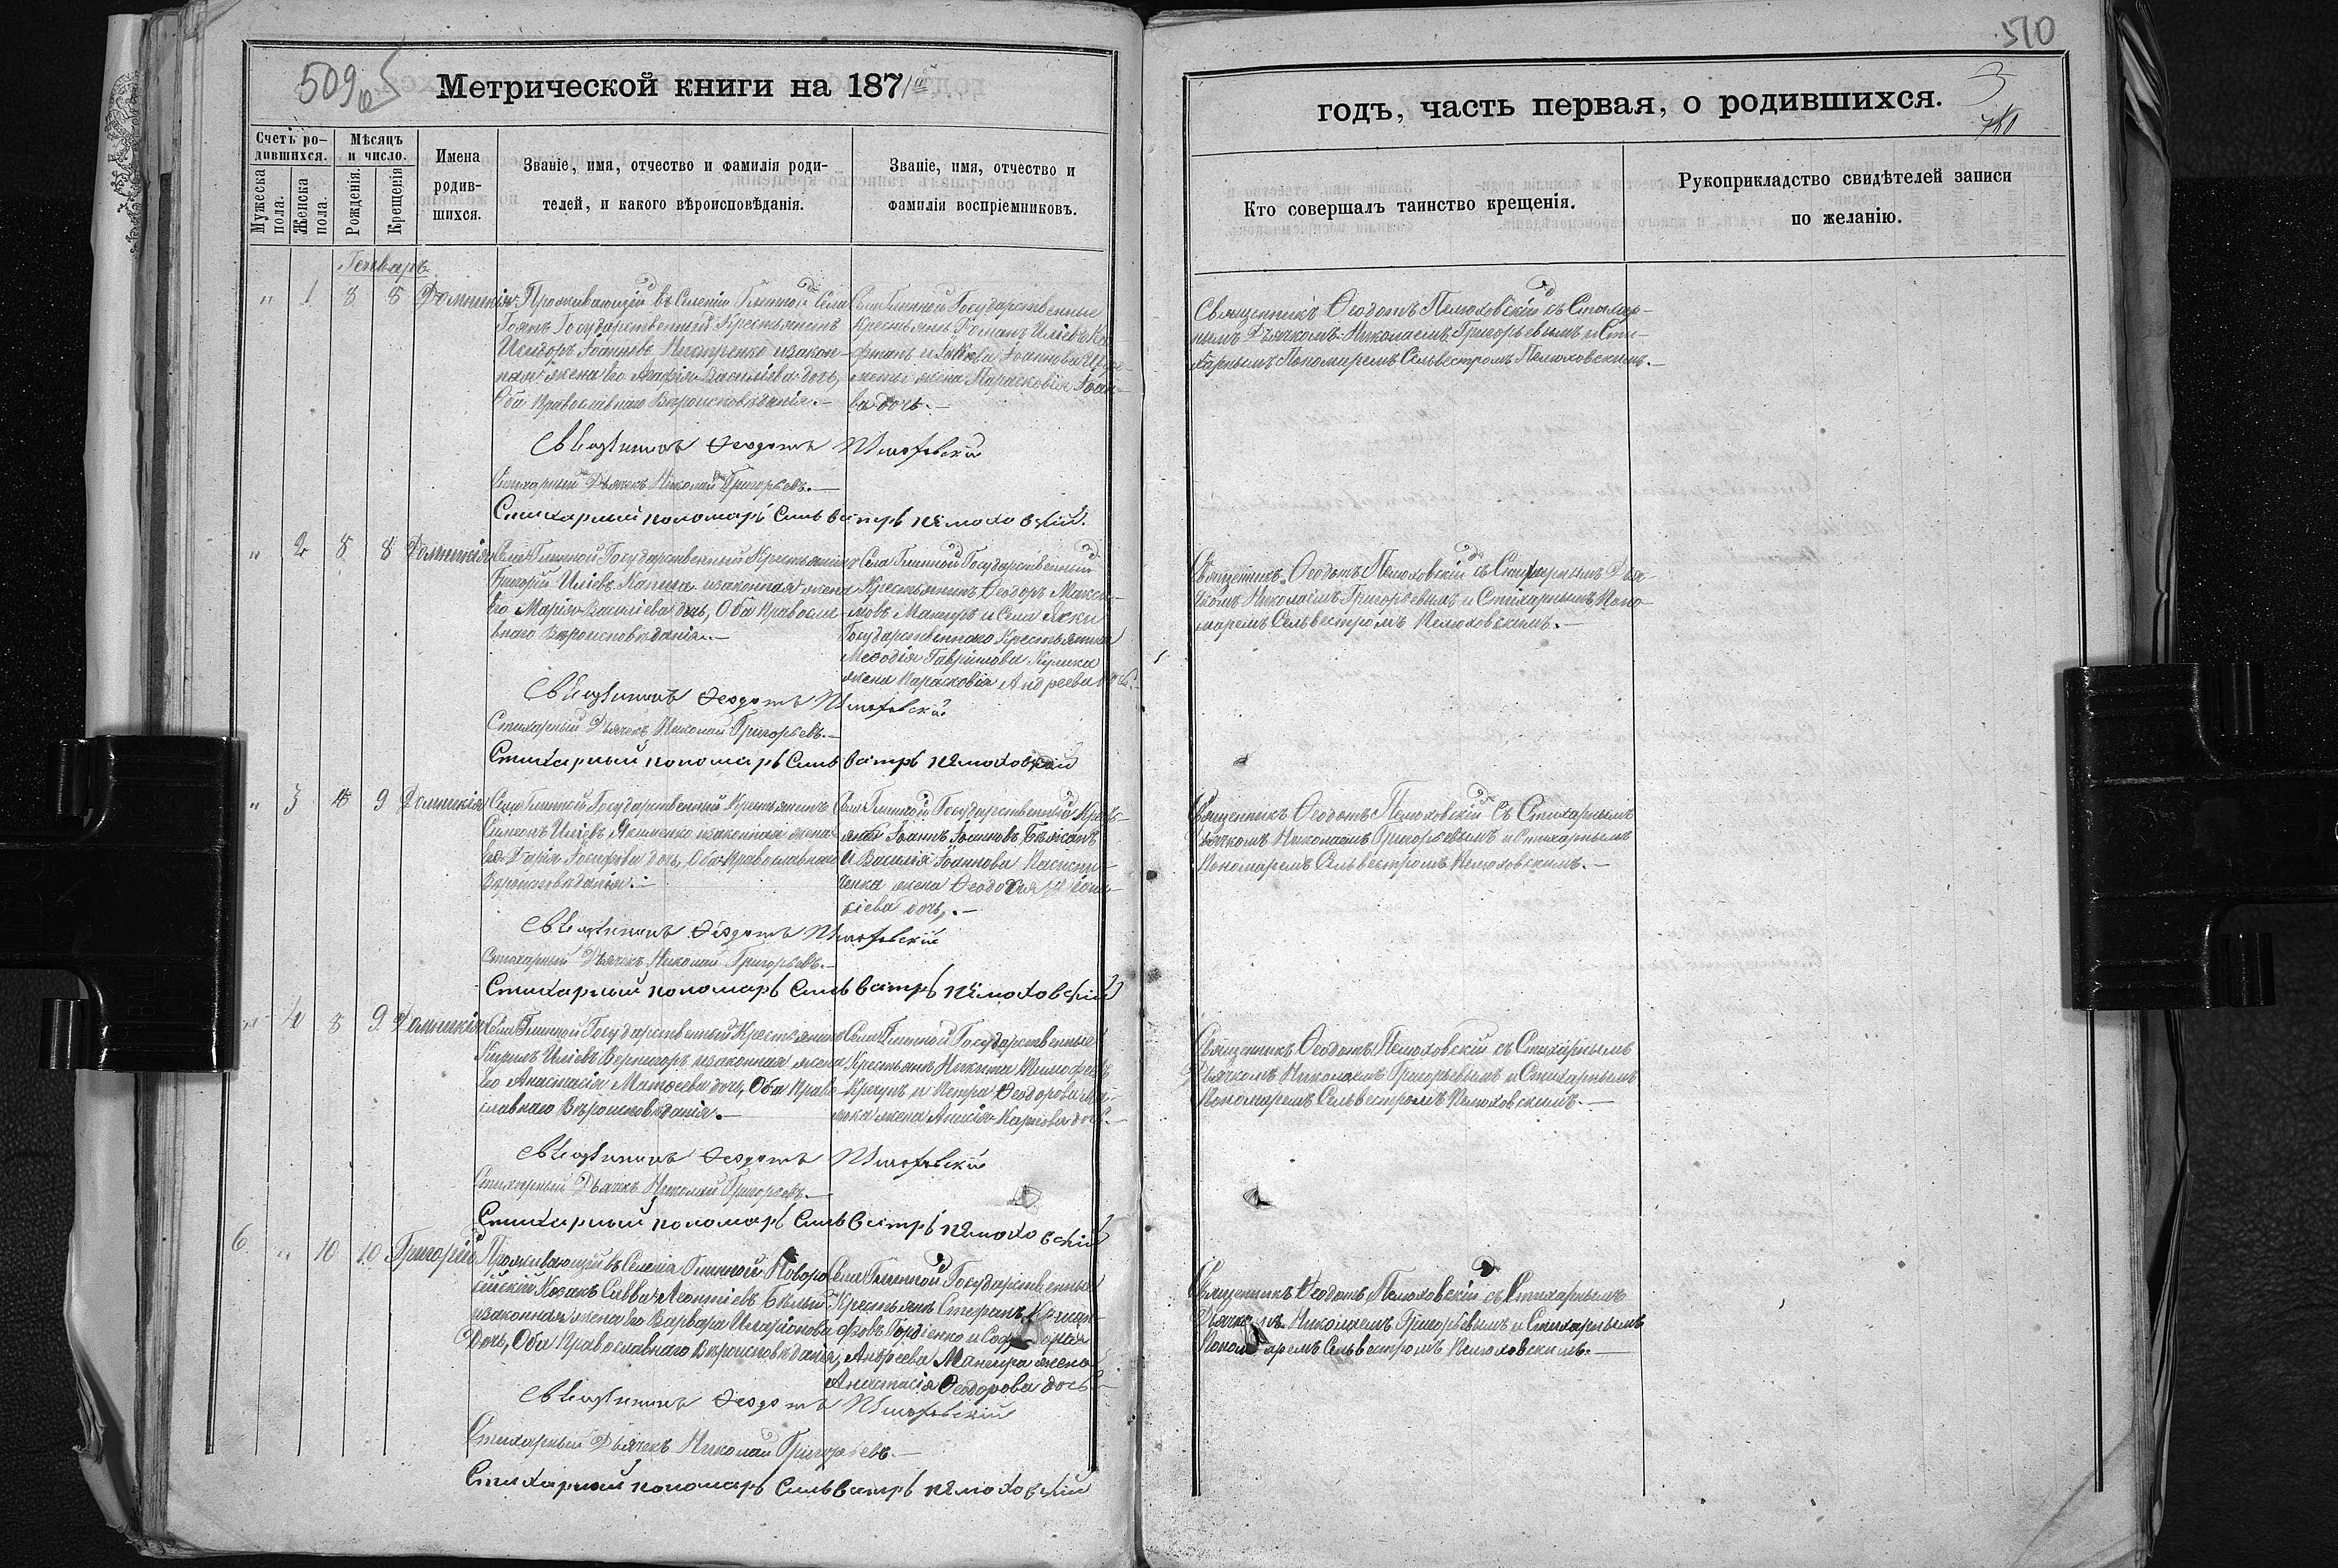 509
Метрической книги на 1871
Счетъ ро-
дившихся.
Мужеска пола.
Женска пола.
Мѣсяцъ
и число.
Рожденія.
Крещенія
Имена
родив-
шихся.
Званіе, имя, отчество и фамилія роди-
телей, и какого вѣроисповѣданія.
Званіе, имя, отчество и
фамилія воспріемниковъ.
Генварь
" 1 8 8 Домникія
Проживающій въ Селеніи Глинной Села
Государственный Крестьянинъ
Исидоръ Іоанновъ законная
жена его Агафія Васильева дочь,
Оба Православнаго Вѣроисповѣданія.-
Села Глинной Государственные
Крестьянъ Романъ Иліевъ
и Іоаннова
жена Парасковія
ва дочь.-
Священникъ Ѳеодотъ Пелюховскій
Стихарный Дьячекъ Николай Григорьевъ.-
Стихарный пономарь Сильвестръ Пелюховскій.
" 2 8 8 Домникія
Села Глинной Государственный Крестьянинъ
Григорій Иліевъ законная жена
его Марія Васильева дочь, Оба Правосла-
внаго Вѣроисповѣданія.-
Села Глинной Государственный
Крестьянинъ Ѳеодоръ Макси-
мовъ и Села Яски
Государственнаго Крестьянина
Меѳодія Гаврилова Кулика
жена Парасковія Андреева дочь.
Священникъ Ѳеодотъ Пелюховскій
Стихарный Дьячекъ Николай Григорьевъ.-
Стихарный пономарь Сильвестръ Пелюховскій
" 3 8 9 Домникія
Села Глинной Государственный Крестьянинъ
Симеонъ Иліевъ Якименко законная жена
его Дарія Іосифова дочь, Оба Православнаго
Вѣроисповѣданія.-
Села Глинной Государственный Кресть-
янинъ Іоаннъ Іоанновъ
и Василія Іоаннова
жена Ѳеодосія
сіева дочь,.-
Священникъ Ѳеодотъ Пелюховскій
Стихарный Дьячекъ Николай Григорьевъ.-
Стихарный пономарь Сильвестръ Пелюховскій
" 4 8 9 Домникія
Села Глинной Государственный Крестьянинъ
Кирилъ Иліевъ законная жена
его Анастасія Матѳеева дочь, Оба Право-
славнаго Вѣроисповѣданія.-
Села Глинной Государственные
Крестьянъ Никита Тимофеевъ
и Петра Ѳеодорова
жена Анисія Карпова дочь.-
Священникъ Ѳеодотъ Пелюховскій
Стихарный Дьячекъ Николай Григорьевъ.-
Стихарный пономарь Сильвестръ Пелюховскій
6 " 10 10 Григорій
Проживающій въ Селеніи Глинной Новорос-
сійскій Козакъ Савва Леонтіевъ Бѣлый
и законная жена его Варвара Иларіонова
Дочь, Оба Православнаго Вѣроисповѣданія,
Села Глинной Государственные
Крестьянъ Стефанъ
Гордіенко и
Андреева жена
Анастасія Ѳеодорова дочь
Священникъ Ѳеодотъ Пелюховскій
Стихарный Дьячекъ Николай Григорьевъ.-
Стихарный пономарь Сильвестръ Пелюховскій
510
годъ, часть первая, о родившихся.
3
Кто совершалъ таинство крещенія.
Рукоприкладство свидѣтелей записи
по желанію.
Священникъ Ѳеодотъ Пелюховскій съ Стихар-
нымъ Дьячкомъ Николаемъ Григорьевымъ и Сти-
харнымъ Пономаремъ Сельвестромъ Пелюховскимъ.-
Священникъ Ѳеодотъ Пелюховскій съ Стихарнымъ Дья-
чкомъ Николаемъ Григорьевымъ и Стихарнымъ Поно-
маремъ Сельвестромъ Пелюховскимъ.-
Священникъ Ѳеодотъ Пелюховскій съ Стихарнымъ
Дьячкомъ Николаемъ Григорьевымъ и Стихарнымъ
Пономаремъ Сельвестромъ Пелюховскимъ.-
Священникъ Ѳеодотъ Пелюховскій съ Стихарнымъ
Дьячкомъ Николаемъ Григорьевымъ и Стихарнымъ
Пономаремъ Сельвестромъ Пелюховскимъ.-
Священникъ Ѳеодотъ Пелюховскій съ Стихарнымъ
Дьячкомъ Николаемъ Григорьевымъ и Стихарнымъ
Пономаремъ Сельвестромъ Пелюховскимъ.-